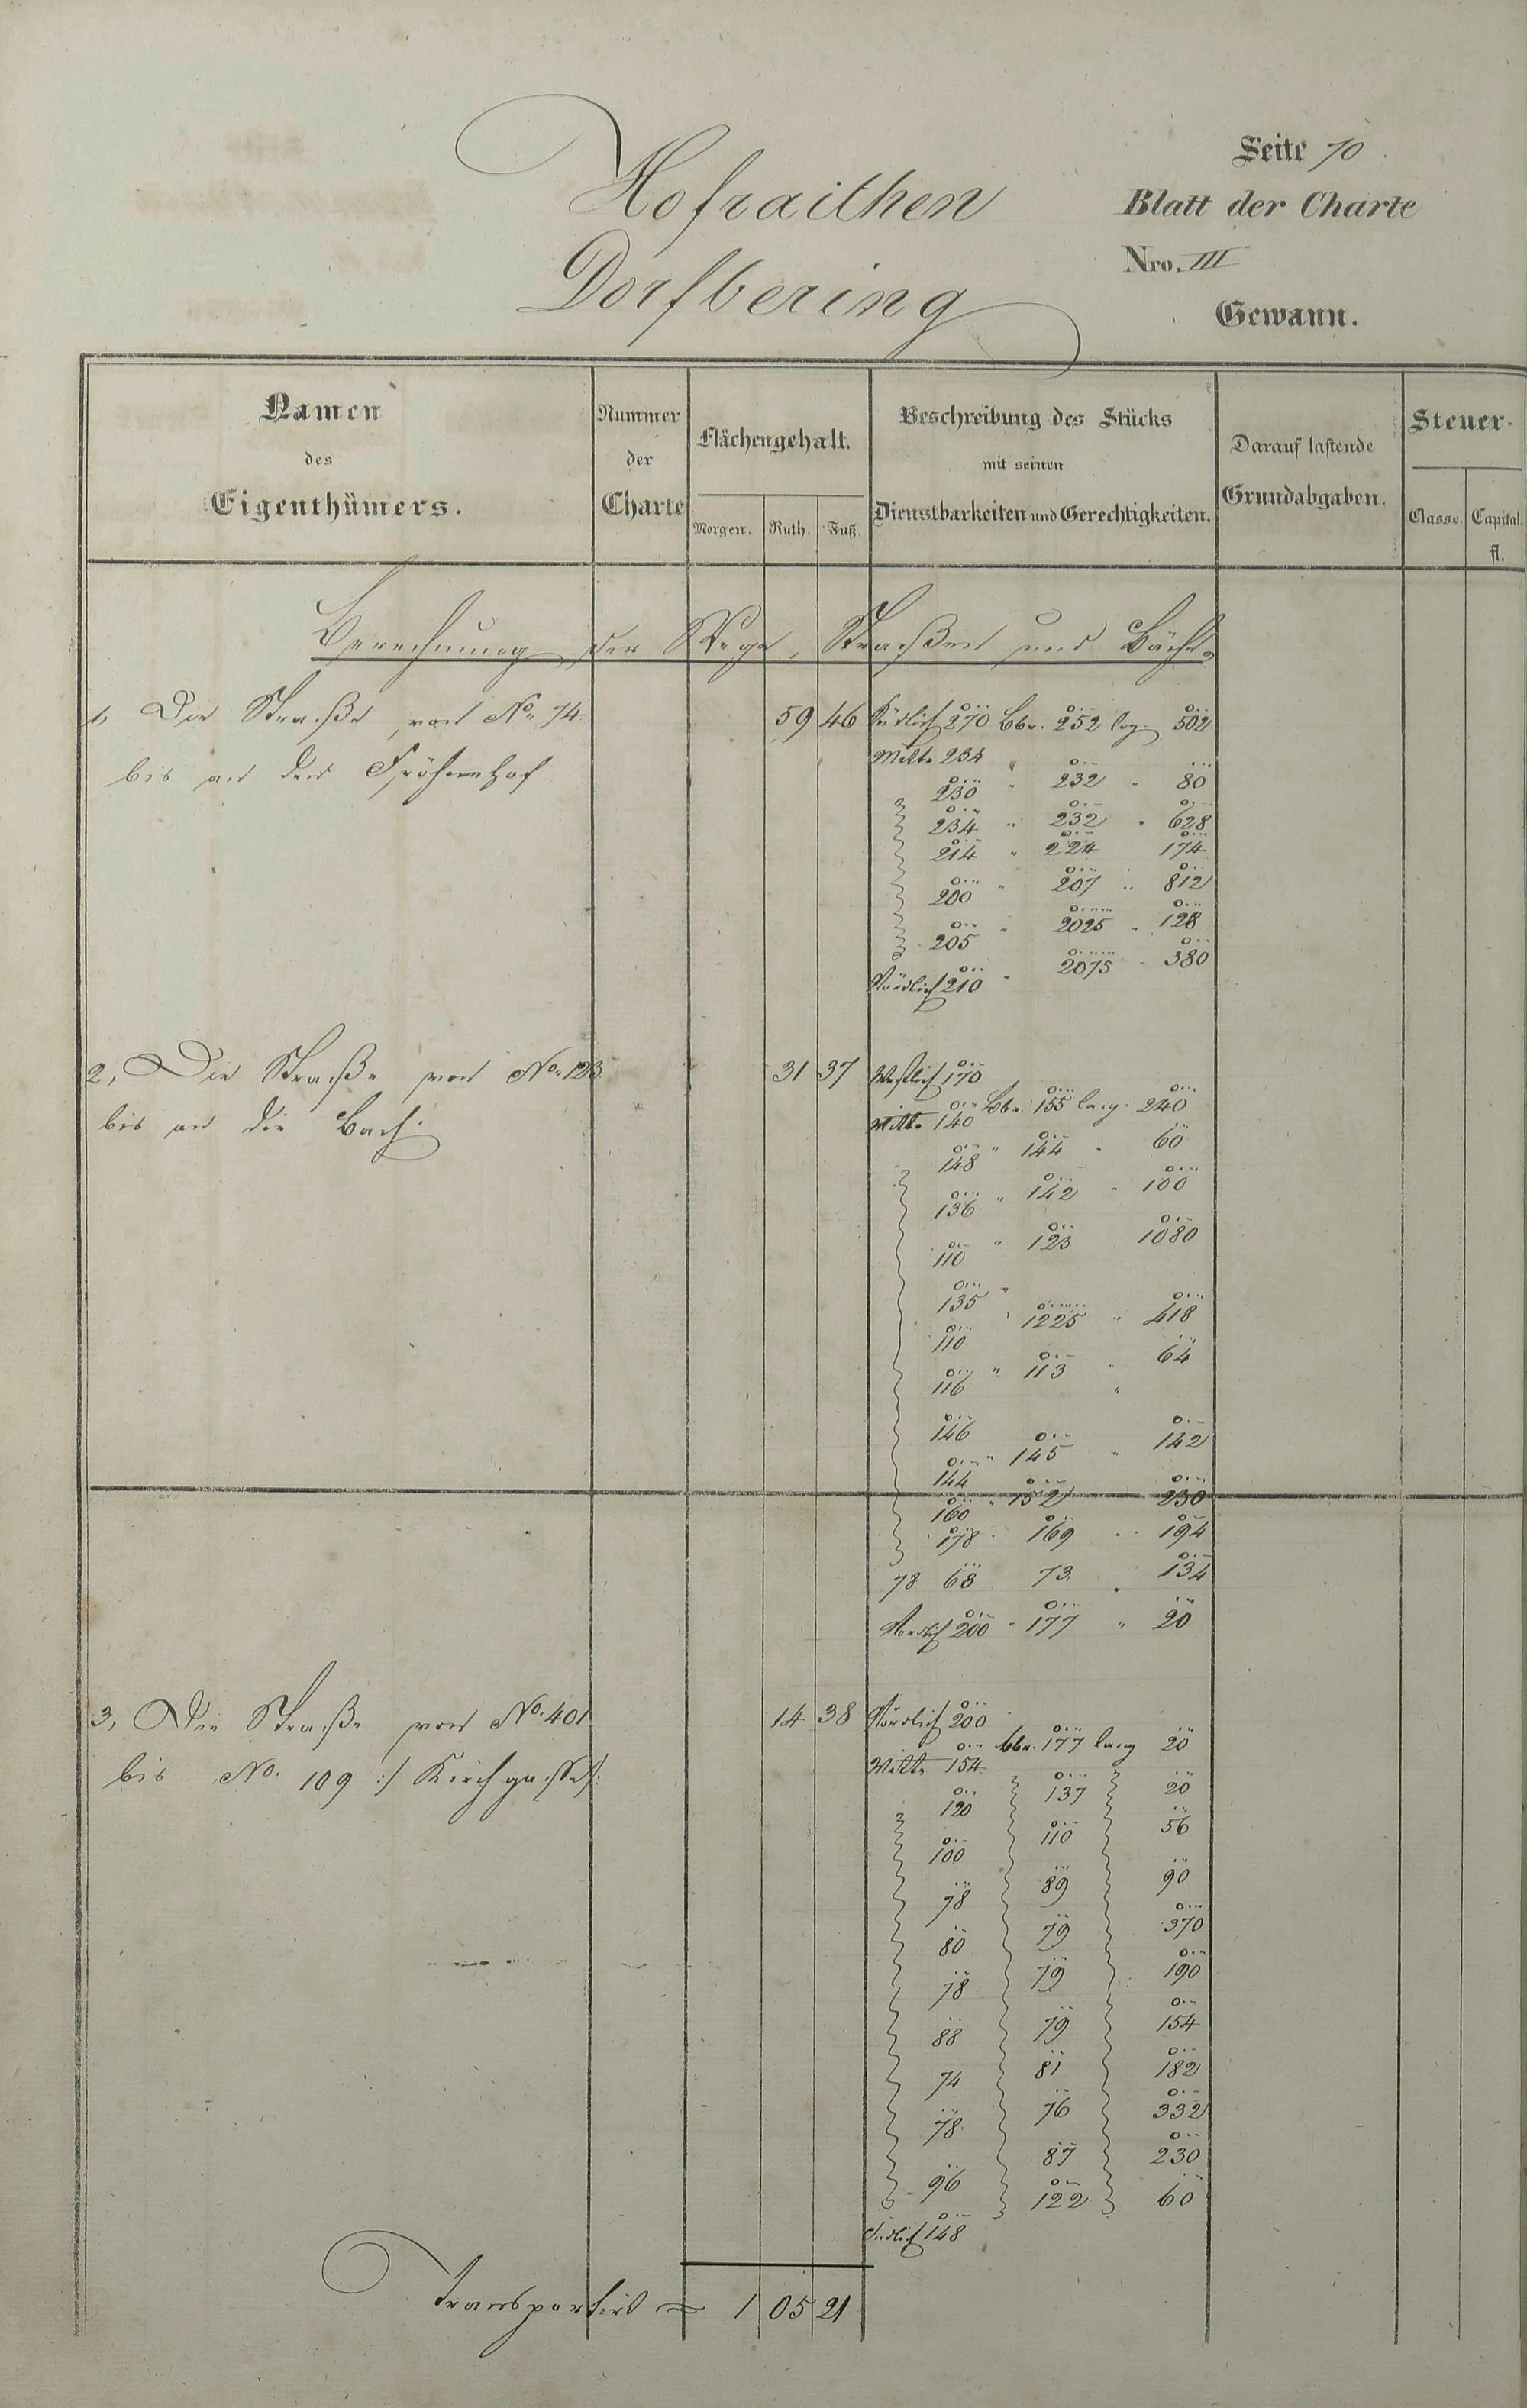 Seite 70
Hofraithen
Blatt der Charte
Nro. III
Dorfbering
Gewann.
Namen des Eigenthümers.
Nummer der Charte
Flächengehalt.
Morgen. Ruth. Fuß.
Beschreibung des Stücks mit seinen Dienstbarkeiten und Gerechtigkeiten.
Darauf lastende Grundabgaben.
Steuer-
Classe. Capital. fl.
Berechnung der Wege, Straßen und Bäche.
1, Die Straße, von No. 74 59 46 Südlich 270 Lbr. 252 lg. 502
bis an den Mitte 234
230 " 232 " 80
234 " 232 " 628
214 " 224 174
200 " 207 " 812
205 " 2025 " 128
Nördlich 210 " 2075 " 380
2, Die Straße von No. 123 31 37 Westlich 170
bis an die Bach. Mitte 140 Lbr. 155 lang 240
148 " 144 " 60
136 " 142 " 100
110 " 123 1080
135 "
110 " 1225 " 418
116 " 113 " 64
146
144 " 145 " 142
160 " 152 230
178 169 " 194
78 68 73 " 134
Nördlich 200 " 177 " 20
3, Die Straße von No. 401 14 38 Nördlich 200
bis No. 109 :/ Kirchgasse/: Mitte 154 bbr. 177 lang 20
120 137 20
100 110 56
78 89 90
80 79 370
78 79 190
88 79 154
74 81 182
78 76 332
96 87 230
Südlich 148 122 60
Transportirt = 1 05 21